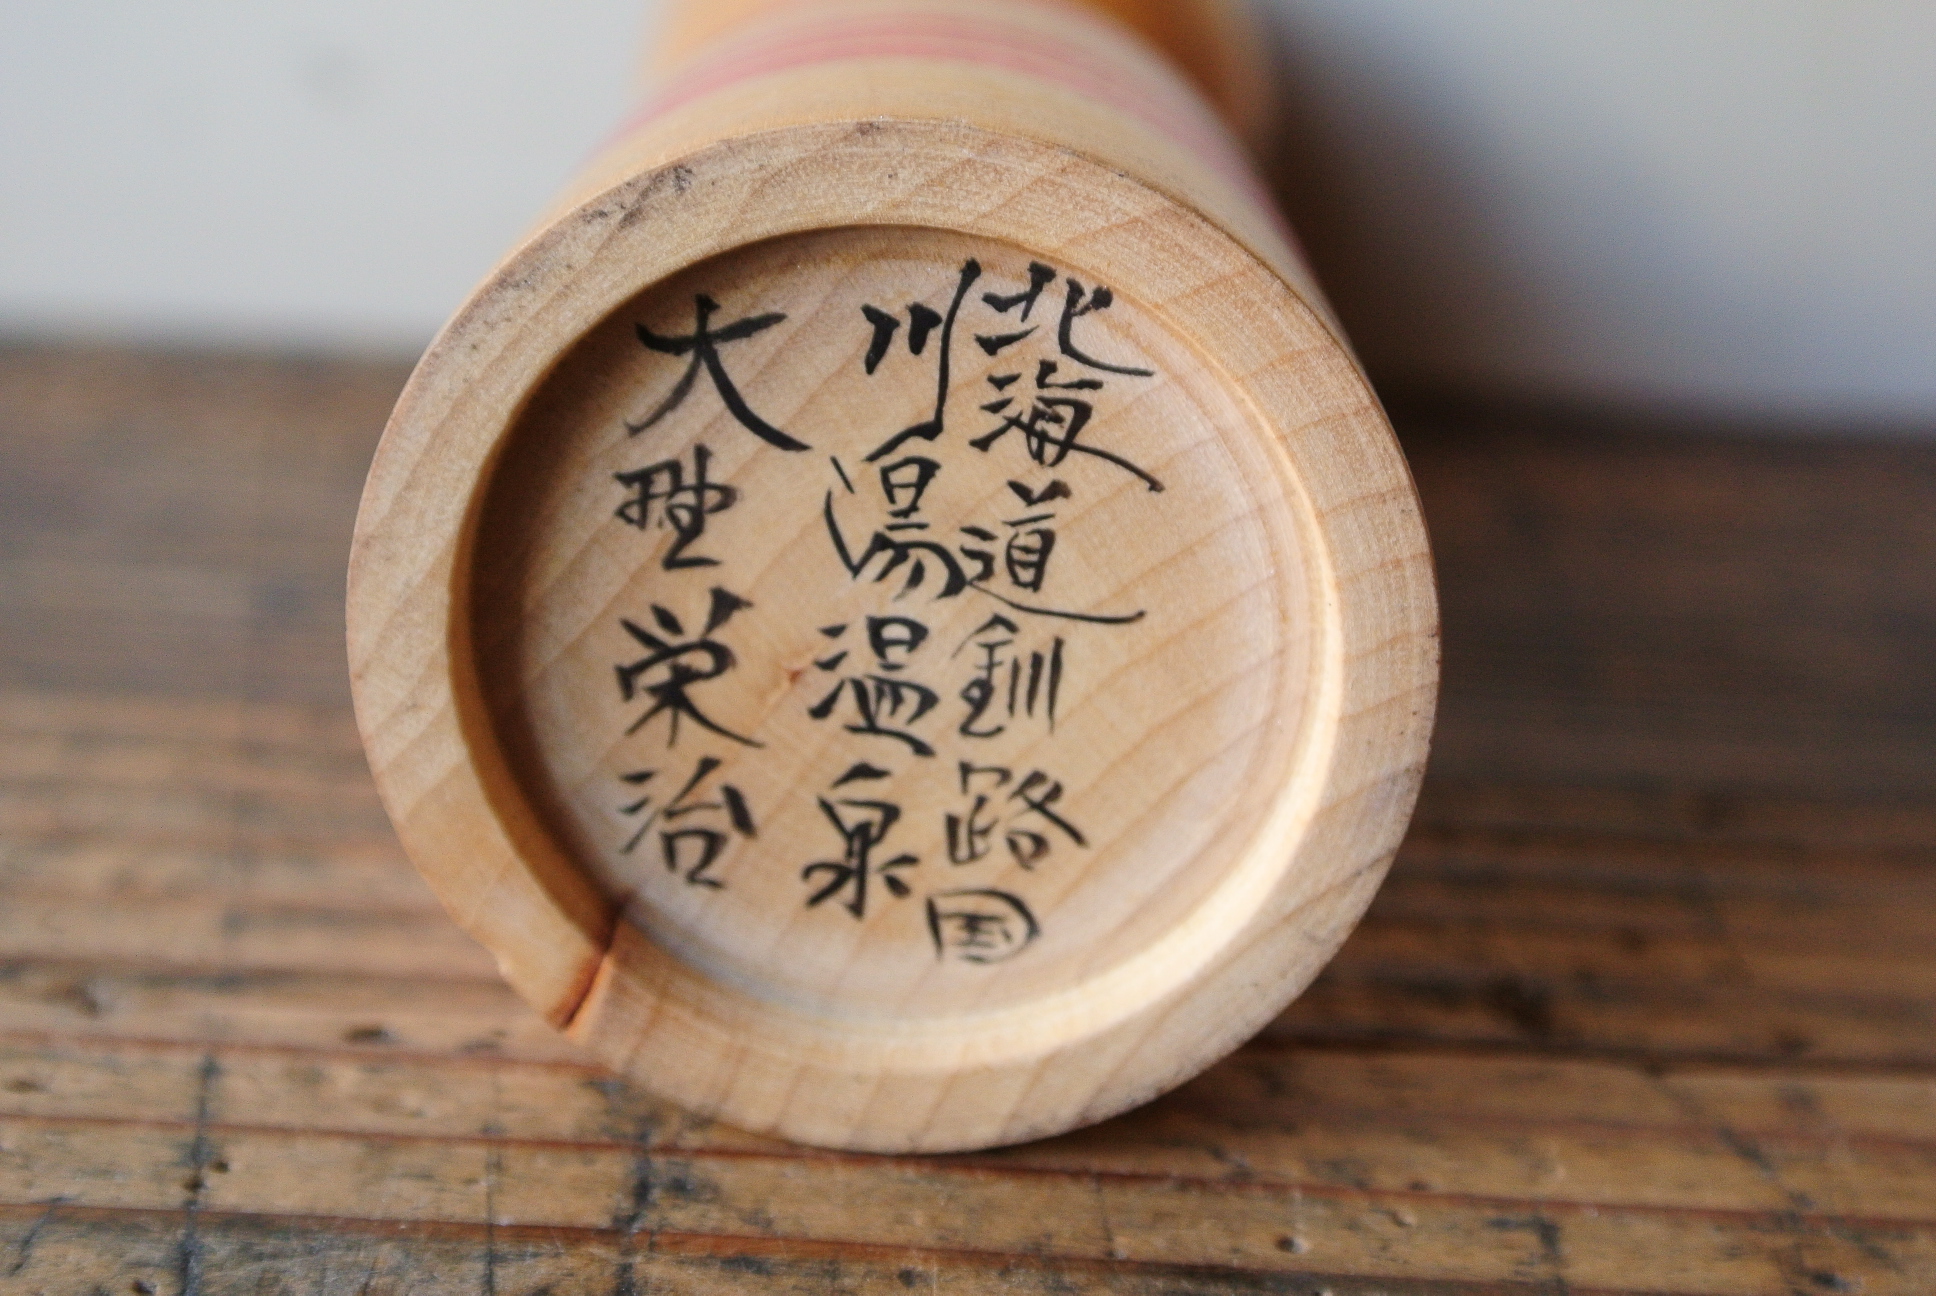 北海道釧路国
川湯温泉
大野栄治